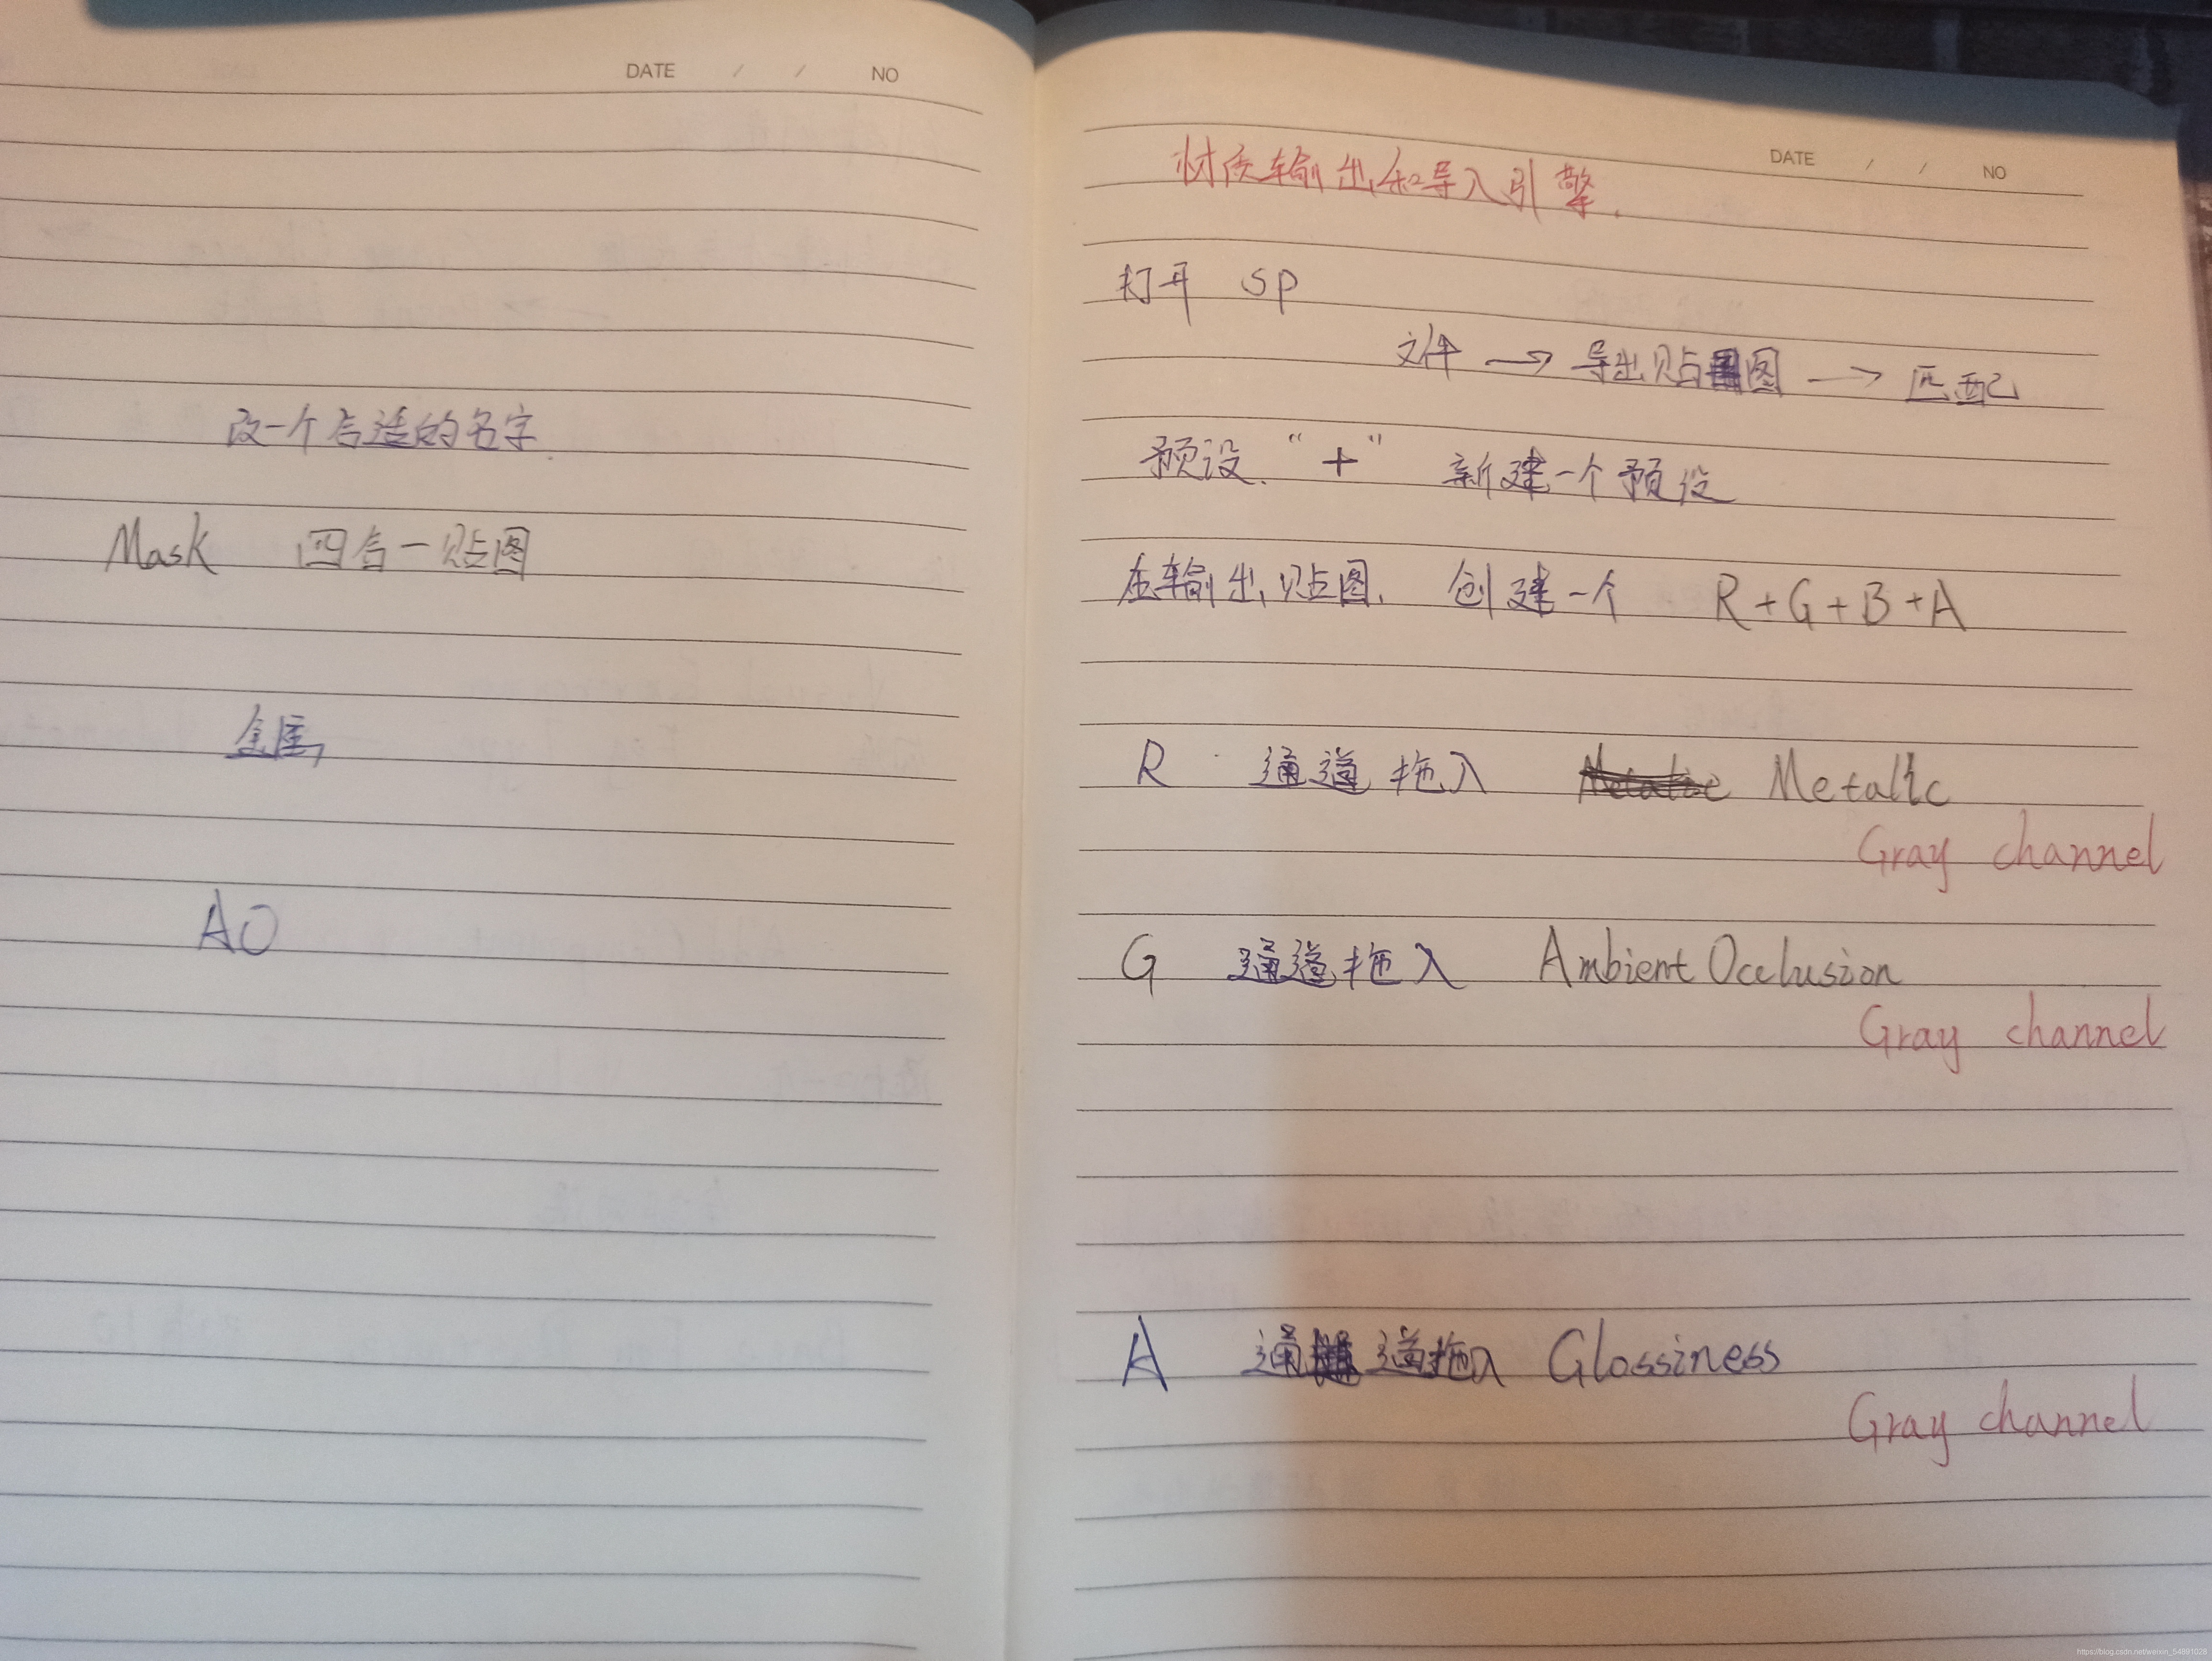 DATE / / NO
改一个合适的名字.
Mask 四合一贴图
金属
AO
DATE / / NO
材质输出和导入引擎.
打开 SP
文件 → 导出贴图 → 匹配
预设. “+” 新建一个预设
在输出贴图. 创建一个 R+G+B+A
R 通道拖入 Metallc
Gray channel
G 通道拖入 Ambient Occlusion
Gray channel
A 通道拖入 Glossiness
Gray channel
https://blog.csdn.net/weixin_54891028